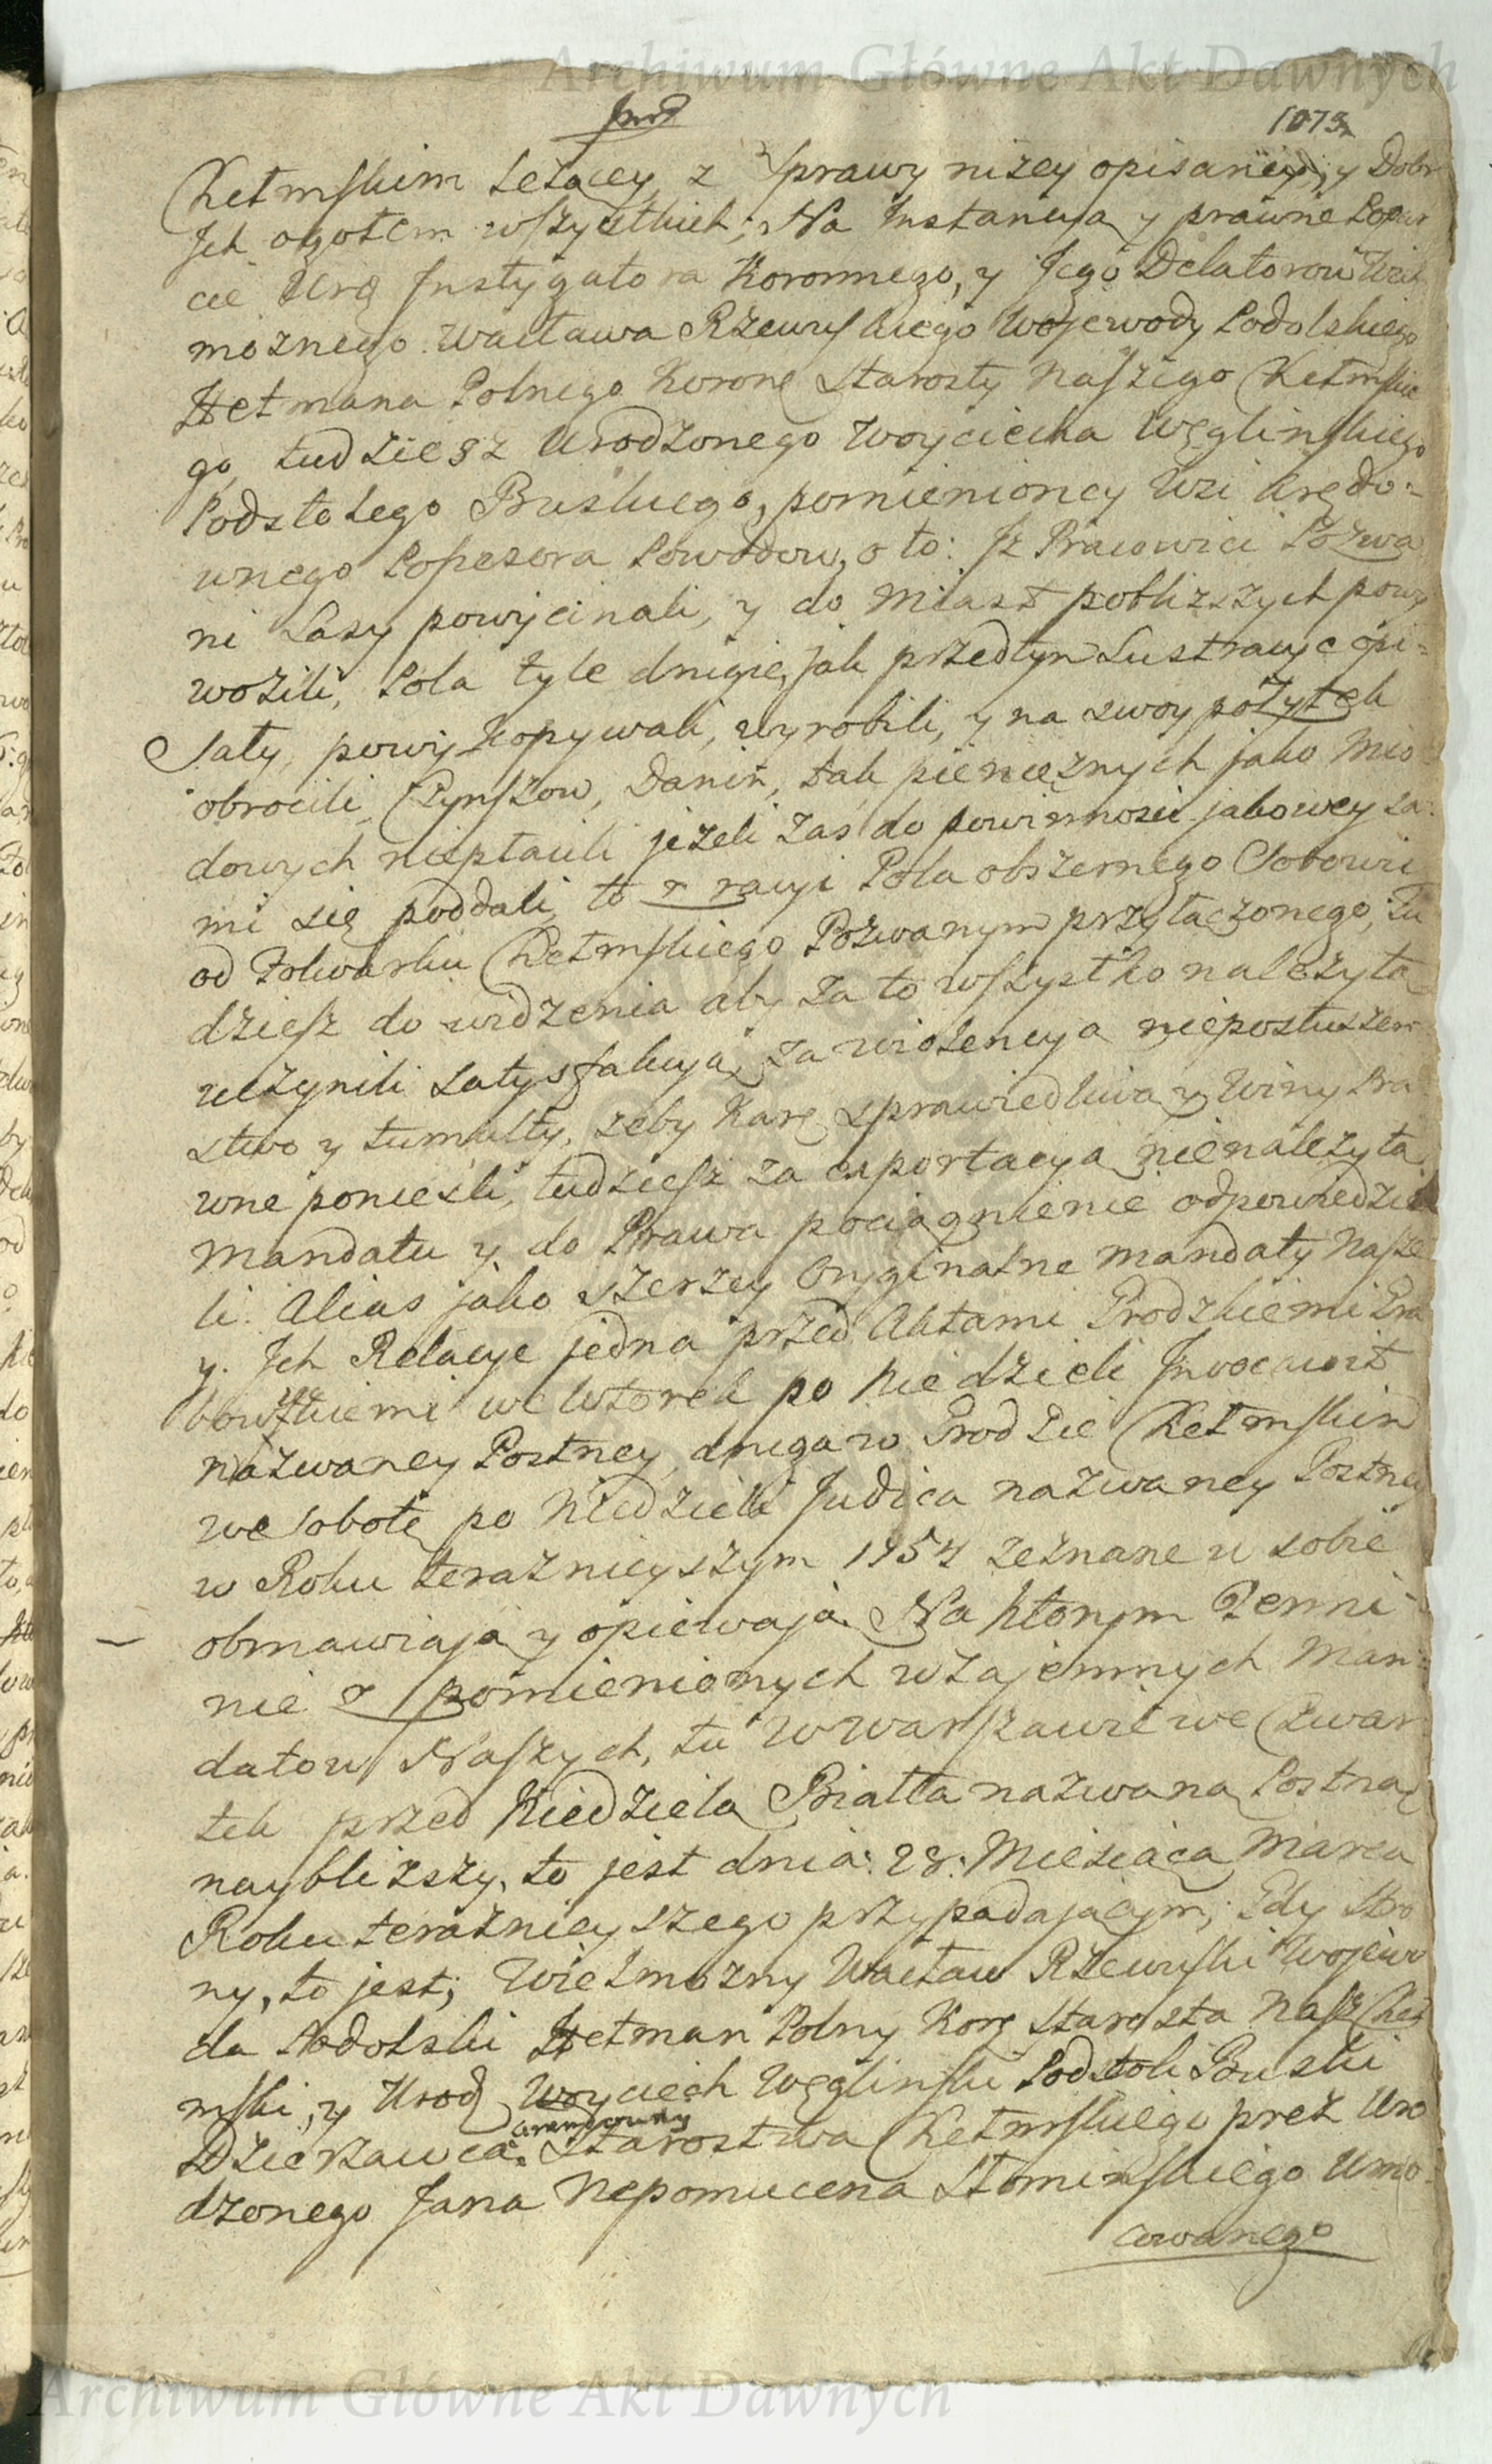 Archiwum Główne Akt Dawnych
1073
Chełmskim Leżącey z Sprawy niżey opisaney, y Dobr
Jch ogołem wszystkich; Na Instancyą y prawne Popar
cie Urę Instygatora Koronnego, y Jego Delatorow Wiel
możnego Wacława Rzewuskiego Wojewody Podolskiego
Hetmana Polnego Koronę Starosty Naszego Chełmskie
go, tudziesz Urodzonego Woyciecha Węglinskiego
Podstolego Buskiego, pomienioney Wsi Arędo=
wnego Possesora Powodow, o to: Jż Pracowici Pozwa
ni Lasy powycinali, y do Miast pobliższych powy
wozili, Pola tyle drugie, jak przedtym Lustracye opi=
sały, powykopywali, wyrobili, y na swoy pożytek
obrocili, Czynszow, Danin, tak pieniężnych jako Mio
dowych niepłacili jeżeli zas do powinnosci jakowey sa=
mi się poddali, to z racyi Pola obszernego Sobowi
od Folwarku Chełmskiego Pozwanym przyłączonego, Tu
dziesz do widzenia aby za to wszystko należytą
uczynili Satysfakcyą, za wiolencyą nieposłuszen
stwo y tumulty, żeby Karę sprawiedliwą y Winy Pra
wne poniesli, tudziesz za exportacyą nienależytą
Mandatu y do Prawa pociągnienie odpowiedzie
li. Alias jako szerzey Oryginalne Mandaty Nasze
y. Jch Relacye jedna przed Aktami Grodzkiemi Gra
bowieckiemi we Wtorek po Niedzieli Invocavit
nazwaney Postney, druga w Grodzie Chełmskim
we Sobotę po Niedzieli Judica nazwaney Postney
w Roku teraznieyszym 1754 zeznane w sobie
obmawiają y opiewają. Na ktorym Termi
nie z pomienionych wzajemnych Man=
datow Naszych, tu w Warszawie we Czwar
tek przed Niedzielą Białła nazwaną Postną
naybliższy, to jest dnia: 28: Miesiąca Marca
Roku teraznieyszego przypadającym; Gdy Stro
ny, to jest; Wielmozny Wacław Rzewuski Wojewo
da Podolski Hetman Polny Korę Starosta Nasz Cheł
mski, y Urodz Woyciech Węglinski Podstoli Buski
arendowny
Dzierzawca Starostwa Chełmskiego prez Uro
dzonego Jana Nepomucena Słominskiego Umo=
cowanego
Archiwum Główne Akt Dawnych